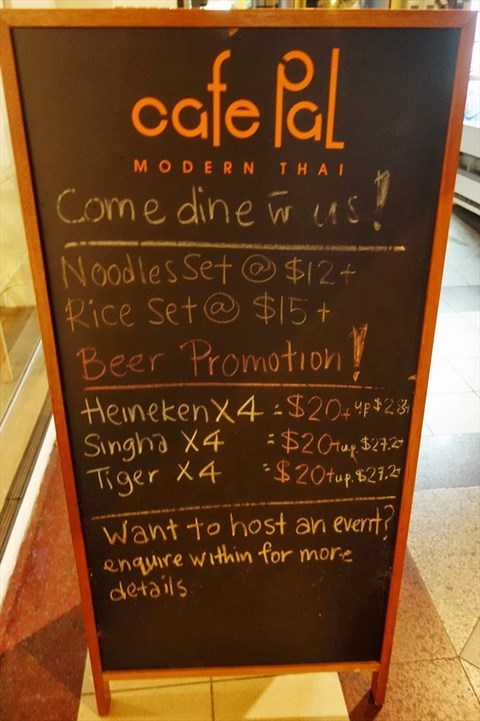 cafe Pal
MODERN THAI
Come dine w us!
Noodles Set @ $12+
Rice Set @ $15+
Beer Promotion!
Heineken X4 = $20+ u.p $28+
Singha X4 = $20+ u.p. $27.2+
Tiger X4 = $20+ u.p. $27.2+
Want to host an event?
enquire within for more
details